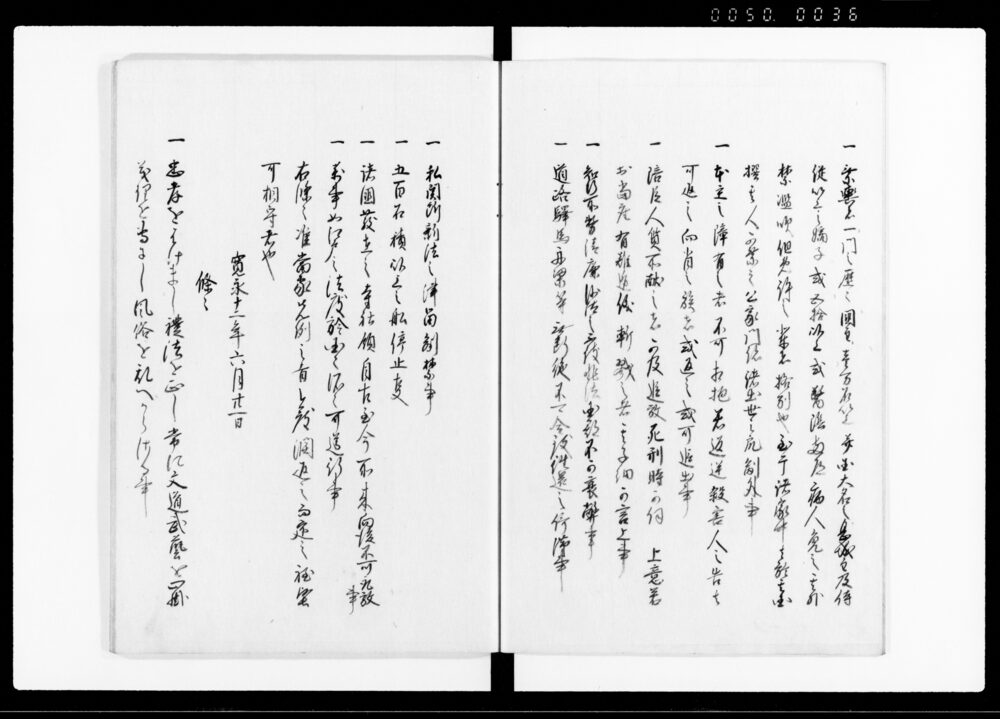 0050 0036
一 乗輿者一門之歴々国主壱万石以上并国大名之息城主及侍
従以上之嫡子或五拾以上或醫陰両道病人免之其外
禁濫吹但免許之輩者格別也至于諸家中者於其国
撰其人可乗之公家門跡諸出世之衆制外事
一 本主之障有之者不可相抱若返逆殺害人之告者
可返之向背之族者或返之或可追出事
一 陪臣人質所献之者可及追放死刑時可伺 上意若
於当座有難遁儀斬戮之者其子細可言上事
一 知行所務清廉沙汰之不致非法国郡不可衰弊事
一 道路驛馬舟梁等無断絶不可令致往還之停滞事
一 私関所新法之津留制禁事
一 五百石積以上之船停止事
一 諸國散在之寺社領自古至今所来向後不可取放事
一 万事如江戸之法度於国々所々可遵行事
右條々准當家先制之旨今度潤色而定之訖堅
可相守者也
寛永十二年六月廿一日
條々
一 忠孝をはけまし礼法を正し常に文道武藝を心掛
義理を専にし風俗をみたるへからさる事